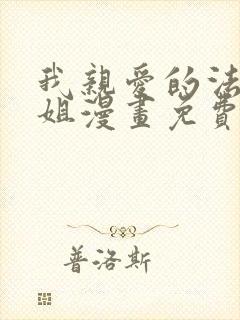 我親愛的法
姐漫畫免費
普洛斯